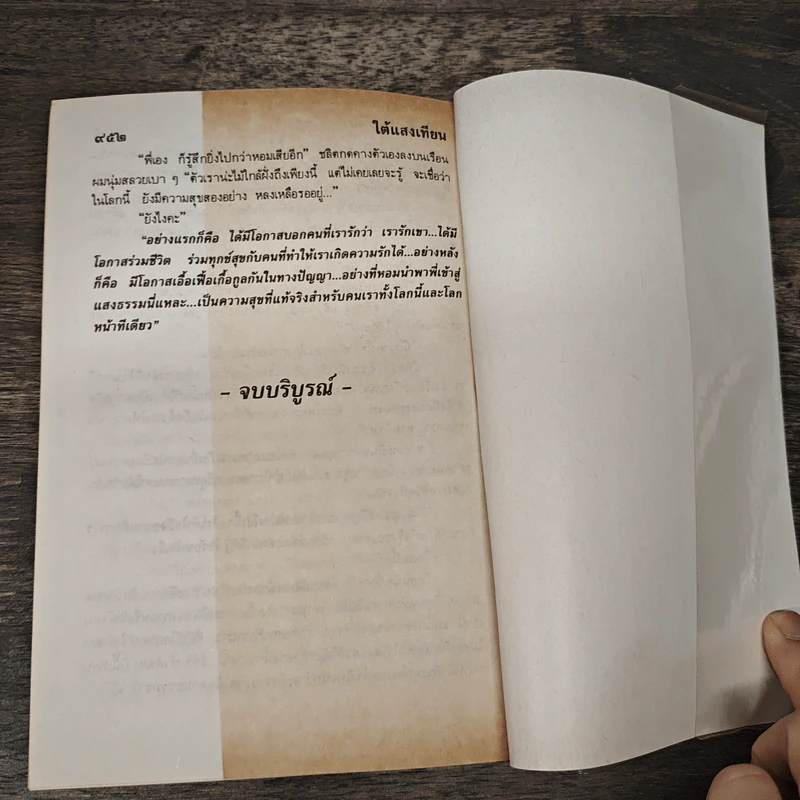 ๙๕๒
ใต้แสงเทียน
“พี่เอง ก็รู้สึกยิ่งไปกว่าหอมเสียอีก” ชลิตกดคางตัวเองลงบนเรือน
ผมนุ่มสลวยเบา ๆ “ตัวเราน่ะไม้ใกล้ฝั่งถึงเพียงนี้ แต่ไม่เคยเลยจะรู้ จะเชื่อว่า
ในโลกนี้ ยังมีความสุขสองอย่าง หลงเหลือรออยู่...”
“ยังไงคะ”
“อย่างแรกก็คือ ได้มีโอกาสบอกคนที่เรารักว่า เรารักเขา...ได้มี
โอกาสร่วมชีวิต ร่วมทุกข์สุขกับคนที่ทำให้เราเกิดความรักได้...อย่างหลัง
ก็คือ มีโอกาสเอื้อเฟื้อเกื้อกูลกันในทางปัญญา...อย่างที่หอมนำพาพี่เข้าสู่
แสงธรรมนี่แหละ...เป็นความสุขที่แท้จริงสำหรับคนเราทั้งโลกนี้และโลก
หน้าทีเดียว”
- จบบริบูรณ์ -